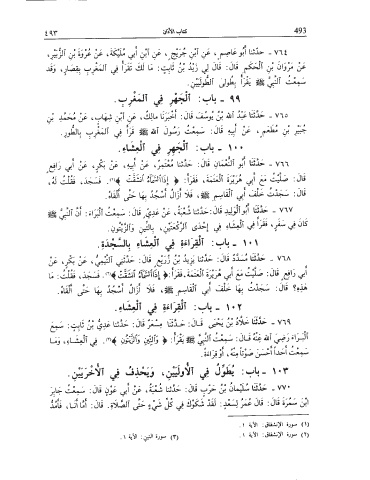 ٤٩٣ كتاب الأذان 493
٧٦٤ - حدّثنا أبو عاصم، عَنِ ابْنِ جُرَيْجٍ، عَنِ ابْنِ أبي مُلَيْكَةَ، عَنْ عُرْوَةَ بْنِ الزُّبَيْرِ،
عَنْ مَرْوَانَ بْنِ الْحَكَمِ قَالَ: قَالَ لِي زَيْدُ بْنُ ثَابِتٍ: مَا لَكَ تَقْرَأُ فِي الْمَغْرِبِ بِقِصَارٍ، وَقَدْ
سَمِعْتُ النَّبِيَّ ﷺ يَقْرَأُ بِطُولَى الطُّولَيَيْنِ.
٩٩ - باب: الْجَهْرِ فِي الْمَغْرِبِ.
٧٦٥ - حَدَّثَنَا عَبْدُ اللَّهِ بْنُ يُوسُفَ قَالَ: أَخْبَرَنَا مَالِكٌ، عَنِ ابْنِ شِهَابٍ، عَنْ مُحَمَّدِ بْنِ
جُبَيْرِ بْنِ مُطْعِمٍ، عَنْ أَبِيهِ قَالَ: سَمِعْتُ رَسُولَ اللَّهِ ﷺ قَرَأَ فِي الْمَغْرِبِ بِالطُّورِ.
١٠٠ - باب: الْجَهْرِ فِي الْعِشَاءِ.
٧٦٦ - حَدَّثَنَا أَبُو النُّعْمَانِ قَالَ: حَدَّثَنَا مُعْتَمِرٌ، عَنْ أَبِيهِ، عَنْ بَكْرٍ، عَنْ أَبِي رَافِعٍ
قَالَ: صَلَّيْتُ مَعَ أَبِي هُرَيْرَةَ الْعَتَمَةَ، فَقَرَأَ: ﴿إِذَا السَّمَاءُ انْشَقَّتْ﴾(١). فَسَجَدَ، فَقُلْتُ لَهُ،
قَالَ: سَجَدْتُ خَلْفَ أَبِي الْقَاسِمِ ﷺ، فَلَا أَزَالُ أَسْجُدُ بِهَا حَتَّى أَلْقَاهُ.
٧٦٧ - حَدَّثَنَا أَبُو الْوَلِيدِ قَالَ: حَدَّثَنَا شُعْبَةُ، عَنْ عَدِيٍّ قَالَ: سَمِعْتُ الْبَرَاءَ: أَنَّ النَّبِيَّ ﷺ
كَانَ فِي سَفَرٍ، فَقَرَأَ فِي الْعِشَاءِ فِي إِحْدَى الرَّكْعَتَيْنِ، بِالتِّينِ وَالزَّيْتُونِ.
١٠١ - باب: الْقِرَاءَةِ فِي الْعِشَاءِ بِالسَّجْدَةِ.
٧٦٨ - حَدَّثَنَا مُسَدَّدٌ قَالَ: حَدَّثَنَا يَزِيدُ بْنُ زُرَيْعٍ قَالَ: حَدَّثَنِي التَّيْمِيُّ، عَنْ بَكْرٍ، عَنْ
أَبِي رَافِعٍ قَالَ: صَلَّيْتُ مَعَ أَبِي هُرَيْرَةَ الْعَتَمَةَ، فَقَرَأَ: ﴿إِذَا السَّمَاءُ انْشَقَّتْ﴾(٢). فَسَجَدَ، فَقُلْتُ: مَا
هَذِهِ؟ قَالَ: سَجَدْتُ بِهَا خَلْفَ أَبِي الْقَاسِمِ ﷺ، فَلَا أَزَالُ أَسْجُدُ بِهَا حَتَّى أَلْقَاهُ.
١٠٢ - باب: الْقِرَاءَةِ فِي الْعِشَاءِ.
٧٦٩ - حَدَّثَنَا خَلَّادُ بْنُ يَحْيَى قَالَ: حَدَّثَنَا مِسْعَرٌ قَالَ: حَدَّثَنَا عَدِيُّ بْنُ ثَابِتٍ: سَمِعَ
الْبَرَاءَ رَضِيَ اللَّهُ عَنْهُ قَالَ: سَمِعْتُ النَّبِيَّ ﷺ يَقْرَأُ: ﴿وَالتِّينِ وَالزَّيْتُونِ﴾(٣). فِي الْعِشَاءِ، وَمَا
سَمِعْتُ أَحَدًا أَحْسَنَ صَوْتًا مِنْهُ، أَوْ قِرَاءَةً.
١٠٣ - باب: يُطَوِّلُ فِي الْأُولَيَيْنِ، وَيَحْذِفُ فِي الْأُخْرَيَيْنِ.
٧٧٠ - حَدَّثَنَا سُلَيْمَانُ بْنُ حَرْبٍ قَالَ: حَدَّثَنَا شُعْبَةُ، عَنْ أَبِي عَوْنٍ قَالَ: سَمِعْتُ جَابِرَ
ابْنَ سَمُرَةَ قَالَ: قَالَ عُمَرُ لِسَعْدٍ: لَقَدْ شَكَوْكَ فِي كُلِّ شَيْءٍ حَتَّى الصَّلَاةِ. قَالَ: أَمَّا أَنَا، فَأَمُدُّ
(١) سورة الإنشقاق: الآية ١.
(٢) سورة الإنشقاق: الآية ١. (٣) سورة التين: الآية ١.